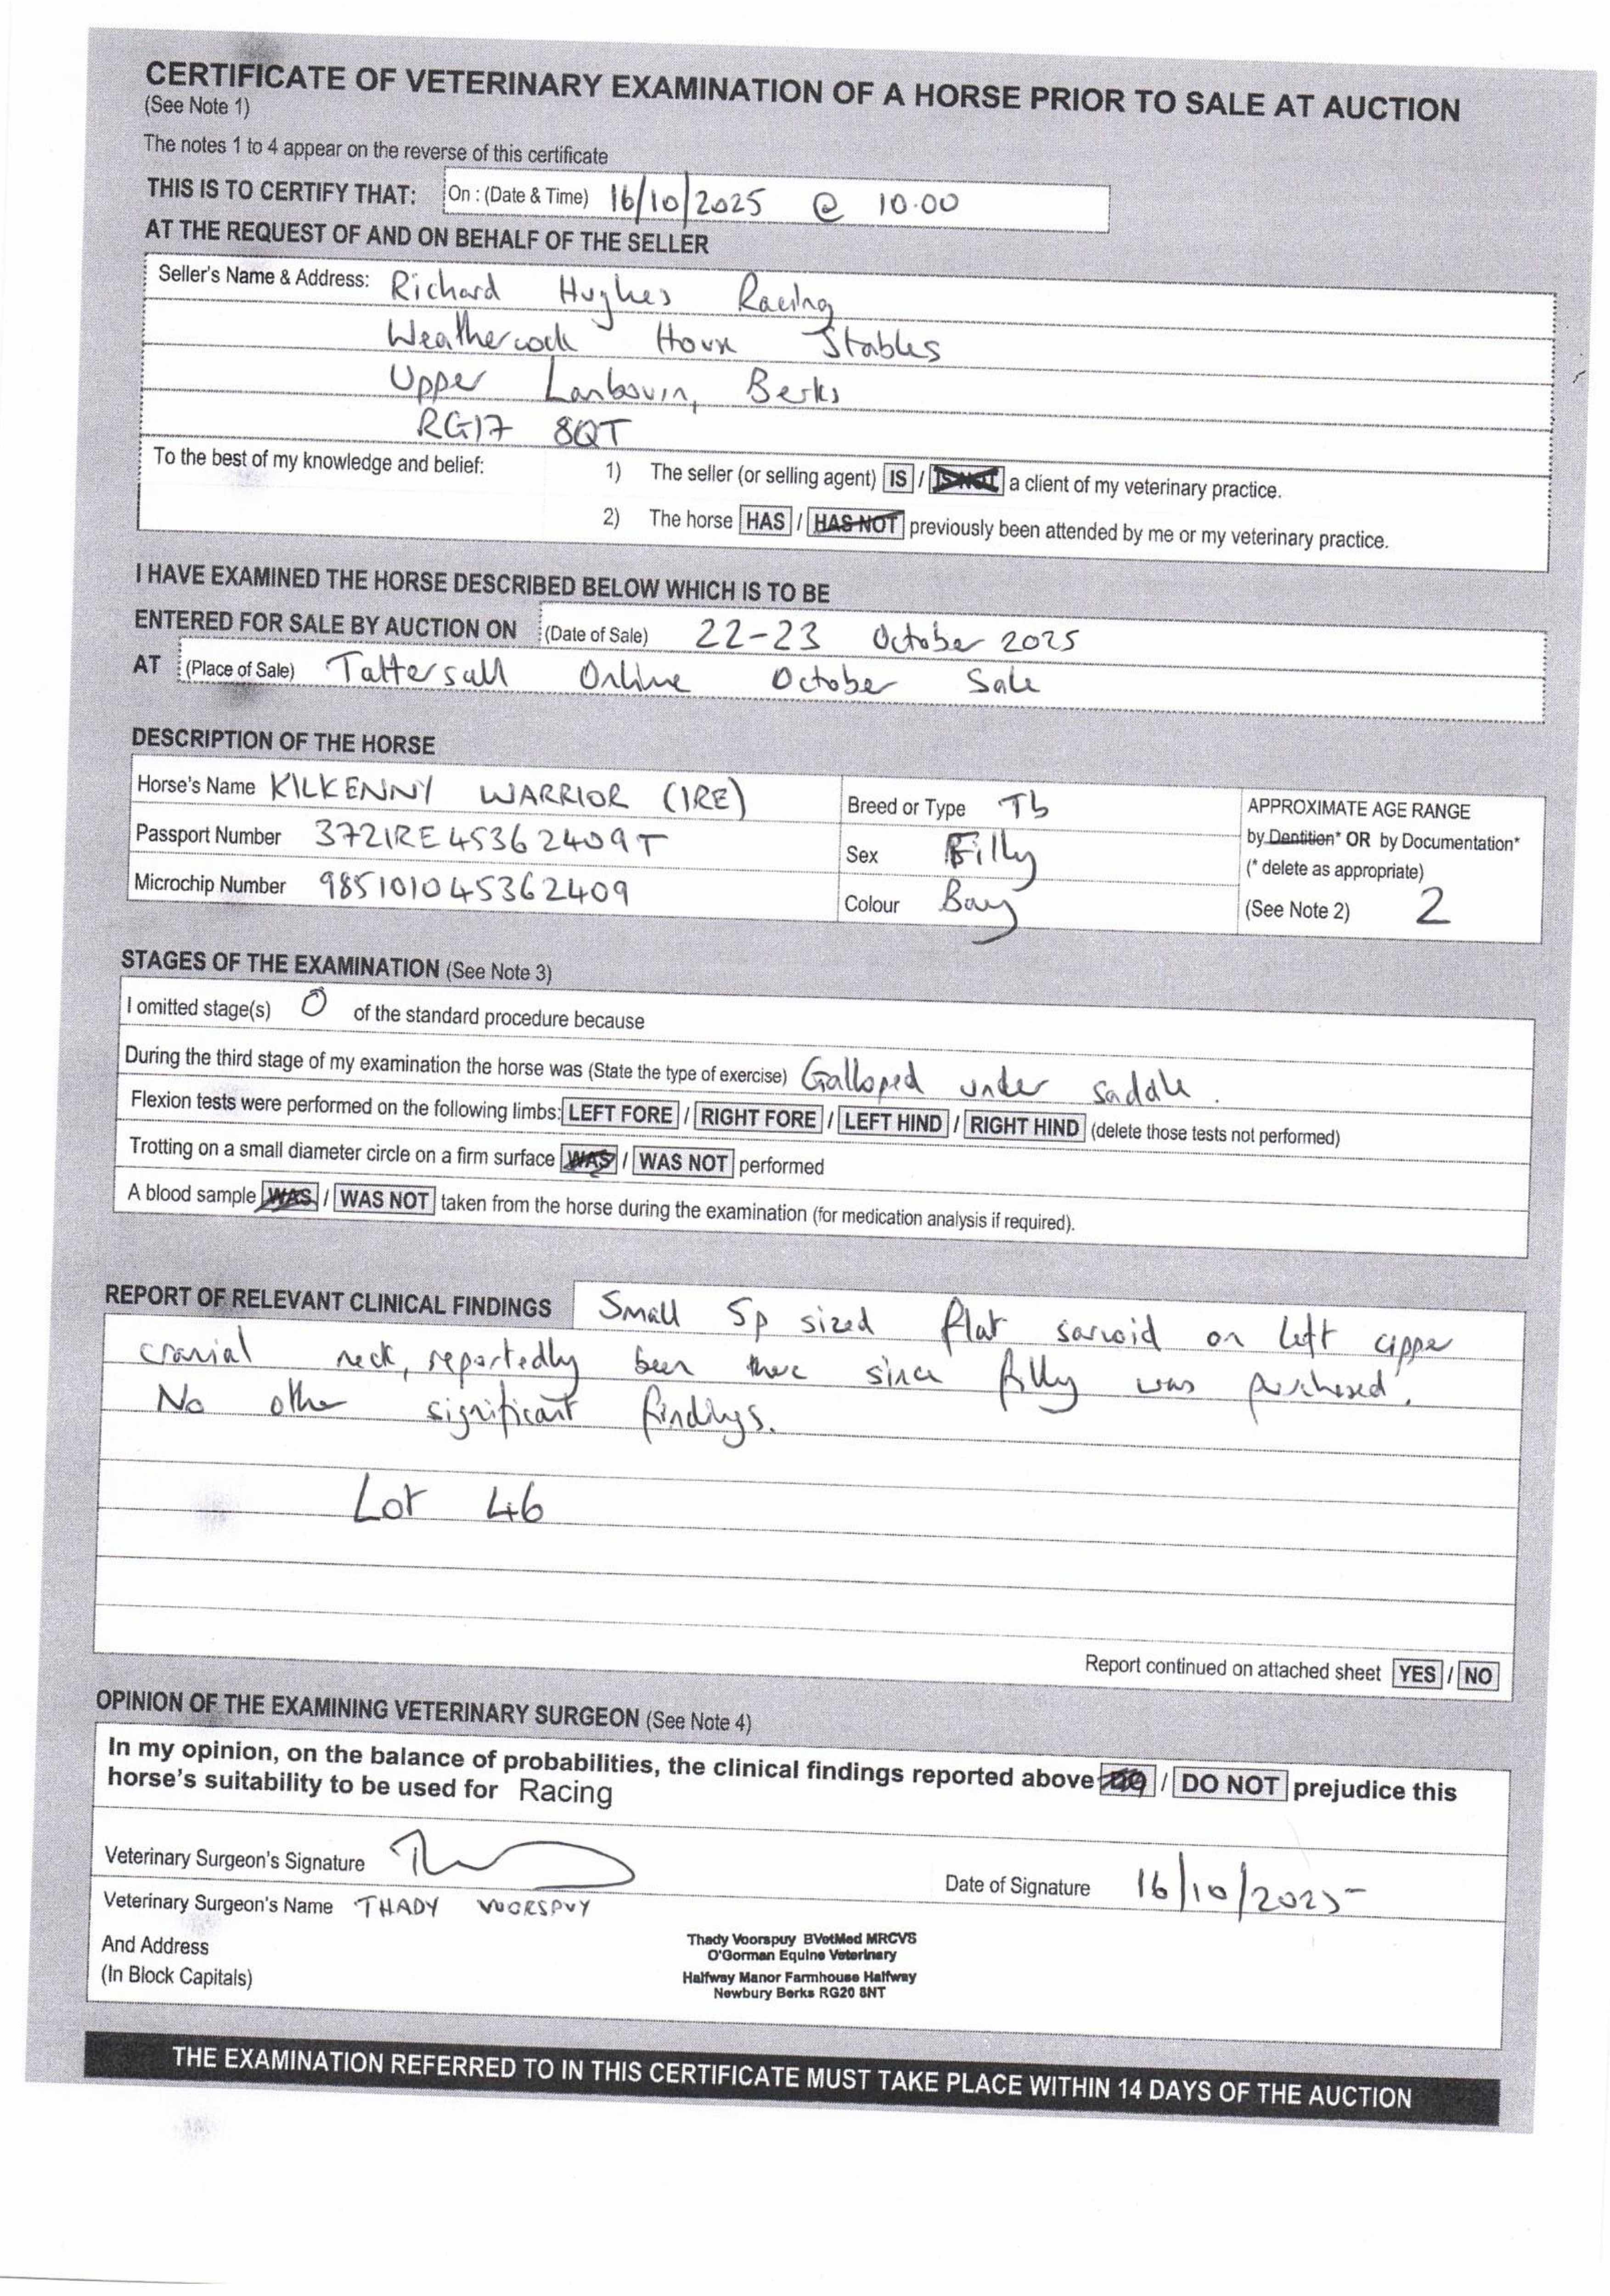 CERTIFICATE OF VETERINARY EXAMINATION OF A HORSE PRIOR TO SALE AT AUCTION
(See Note 1)
The notes 1 to 4 appear on the reverse of this certificate
THIS IS TO CERTIFY THAT: On : (Date & Time) 16/10/2025 @ 10.00
AT THE REQUEST OF AND ON BEHALF OF THE SELLER
Seller's Name & Address: Richard Hughes Racing
Weathercock House Stables
Upper Lambourn, Berks
RG17 8QT
To the best of my knowledge and belief: 1) The seller (or selling agent) IS / IS NOT a client of my veterinary practice.
2) The horse HAS / HAS NOT previously been attended by me or my veterinary practice.
I HAVE EXAMINED THE HORSE DESCRIBED BELOW WHICH IS TO BE
ENTERED FOR SALE BY AUCTION ON (Date of Sale) 22-23 October 2025
AT (Place of Sale) Tattersall Online October Sale
DESCRIPTION OF THE HORSE
Horse's Name KILKENNY WARRIOR (IRE) Breed or Type Tb APPROXIMATE AGE RANGE
Passport Number 372IRE45362409T Sex Filly by Dentition* OR by Documentation*
(* delete as appropriate)
Microchip Number 985101045362409 Colour Bay (See Note 2) 2
STAGES OF THE EXAMINATION (See Note 3)
I omitted stage(s) 0 of the standard procedure because
During the third stage of my examination the horse was (State the type of exercise) Galloped under saddle.
Flexion tests were performed on the following limbs: LEFT FORE / RIGHT FORE / LEFT HIND / RIGHT HIND (delete those tests not performed)
Trotting on a small diameter circle on a firm surface WAS / WAS NOT performed
A blood sample WAS / WAS NOT taken from the horse during the examination (for medication analysis if required).
REPORT OF RELEVANT CLINICAL FINDINGS Small 5p sized flat sarcoid on left upper
cranial neck, reportedly been there since filly was purchased.
No other significant findings.
Lot 46
Report continued on attached sheet YES / NO
OPINION OF THE EXAMINING VETERINARY SURGEON (See Note 4)
In my opinion, on the balance of probabilities, the clinical findings reported above DO / DO NOT prejudice this
horse's suitability to be used for Racing
Veterinary Surgeon's Signature
Date of Signature 16/10/2025
Veterinary Surgeon's Name THADY VOORSPUY
And Address
(In Block Capitals)
Thady Voorspuy BVetMed MRCVS
O'Gorman Equine Veterinary
Halfway Manor Farmhouse Halfway
Newbury Berks RG20 8NT
THE EXAMINATION REFERRED TO IN THIS CERTIFICATE MUST TAKE PLACE WITHIN 14 DAYS OF THE AUCTION